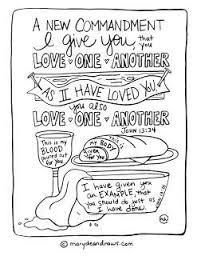 A NEW COMMANDMENT
I give you, that you
LOVE · ONE · ANOTHER
AS I HAVE LOVED YOU
you also
LOVE · ONE · ANOTHER
JOHN 13:34
This is my
BLOOD
poured out
for YOU
my BODY
given
for YOU
I have given you
an EXAMPLE, that
you should do just as
I have done
© marydeandraws.com